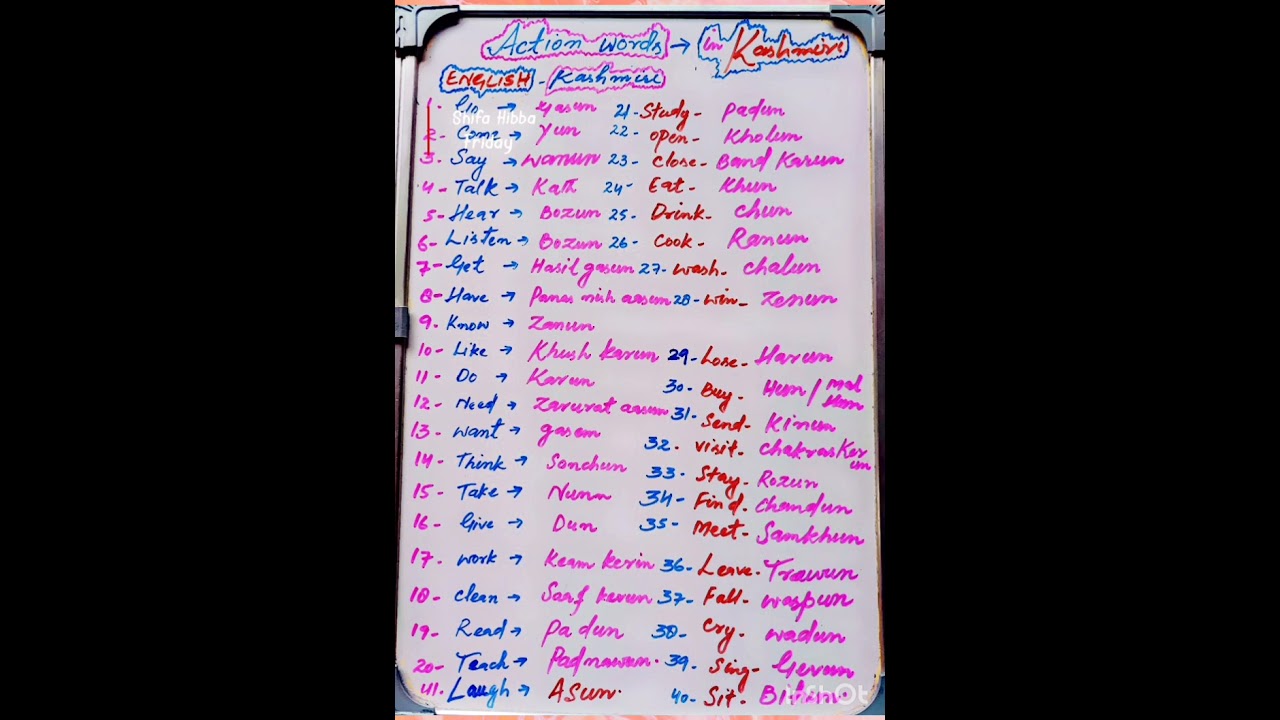 Action words → in Kashmiri
ENGLISH - Kashmiri
1- Go → Gasun 21- Study - Padun
Shifa Hibba
2- Come → Yun 22- Open - Kholun
Friday
3- Say → Wanun 23- Close - Band Karun
4- Talk → Kath 24- Eat - Khun
5- Hear → Bozun 25- Drink - Chun
6- Listen → Bozun 26- Cook - Ranun
7- Get → Hasil gasun 27- Wash - Chalun
8- Have → Panas nish aasun 28- Win - Zenun
9. Know → Zanun
10- Like → Khush karun 29- Lose - Harun
11- Do → Karun 30- Buy - Hun / Mal Hun
12- Need → Zarurat aasun 31- Send - Kinun
13- Want → gasem 32- Visit - Chakras Kerun
14- Think → Sonchun 33- Stay - Rozun
15- Take → Nunn 34- Find - Chandun
16- Give → Dun 35- Meet - Samkhun
17- Work → Keam kerin 36- Leave - Trawun
18- Clean → Saaf kerun 37- Fall - Waspun
19- Read → Padun 38- Cry - Wadun
20- Teach → Padnawun. 39- Sing - Gevun
41. Laugh → Asun. 40- Sit -
InShOt